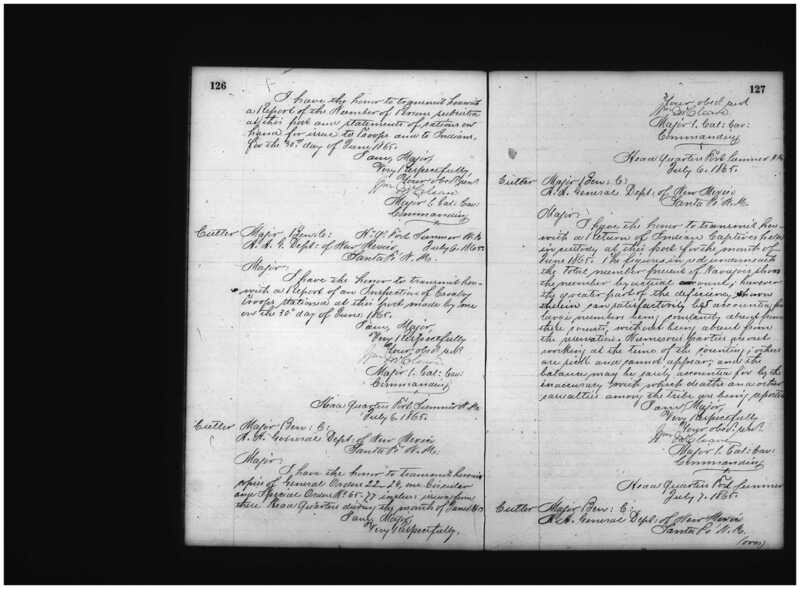 126
I have the honor to transmit herewith
a Report of the Number of Persons subsisted
at this post and statements of rations on
hand for issue to Troops and to Indians,
for the 30th day of June 1865.
I am, Major,
Very Respectfully
Your obdt servt
Major 1. Cal: Cav:
Commanding
Cutler Major Ben: C: Hd Qrs Fort Sumner N.M.
A. A. G. Dept: of New Mexico July 6. 1865.
Santa Fé N. M.
Major
I have the honor to transmit here-
with a Report of an Inspection of Cavalry
Troops, stationed at this post made by me
on the 30th day of June 1865.
I am, Major,
Very Respectfully
Your obdt servt
Major 1. Cal: Cav:
Commanding
Head Quarters Fort Sumner N.M.
July 6. 1865.
Cutler Major Ben: C:
A. A. General Dept: of New Mexico
Santa Fé N. M.
Major:
I have the honor to transmit herewith
copies of General Orders 22–24, one Circular
and Special Orders No 65–77 issued from
these Head Quarters during the month of June 1865
I am, Major,
Very Respectfully,
127
Your obdt servt
Major 1. Cal: Cav:
Commanding
Head Quarters Fort Sumner N.M.
July 6. 1865.
Cutler Major Ben: C:
A. A. General Dept: of New Mexico
Santa Fé N. M.
Major:
I have the honor to transmit here-
with a Return of Indian Captives held
in custody at this post for the month of
June 1865. The figures in red underneath
the total number present of Navajoes show
the number by actual count, however
the greater part of the deficiency shown
therein can satisfactorily be accounted for
large numbers being constantly absent from
these counts, without being absent from
the reservation. Numerous parties are out
working at the time of the counting; others
are sick and cannot appear; and the
balance may be safely accounted for by the
inaccuracy with which deaths and other
casualties among the tribe are being reported
I am, Major,
Very Respectfully
Your obdt servt
Major 1. Cal: Cav:
Commanding
Head Quarters Fort Sumner
July 7. 1865.
Cutler Major Ben: C:
A. A. General Dept: of New Mexico
Santa Fé N. M.
(over)